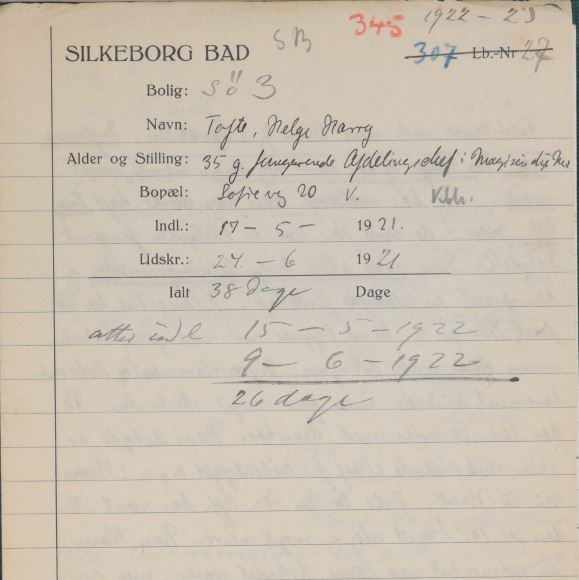 345 1922-25
SILKEBORG BAD SB 307 Lb.-Nr 27
Bolig: Sö 3
Navn: Tofte, Helge Harry
Alder og Stilling: 35 g. fungerende Afdelingschef i
Bopæl: Sofievej 20 V. Kbh.
Indl.: 17 - 5 - 1921.
Udskr.: 24 - 6 1921
Ialt 38 dage Dage
atter indl 15 - 5 - 1922
9 - 6 - 1922
26 dage